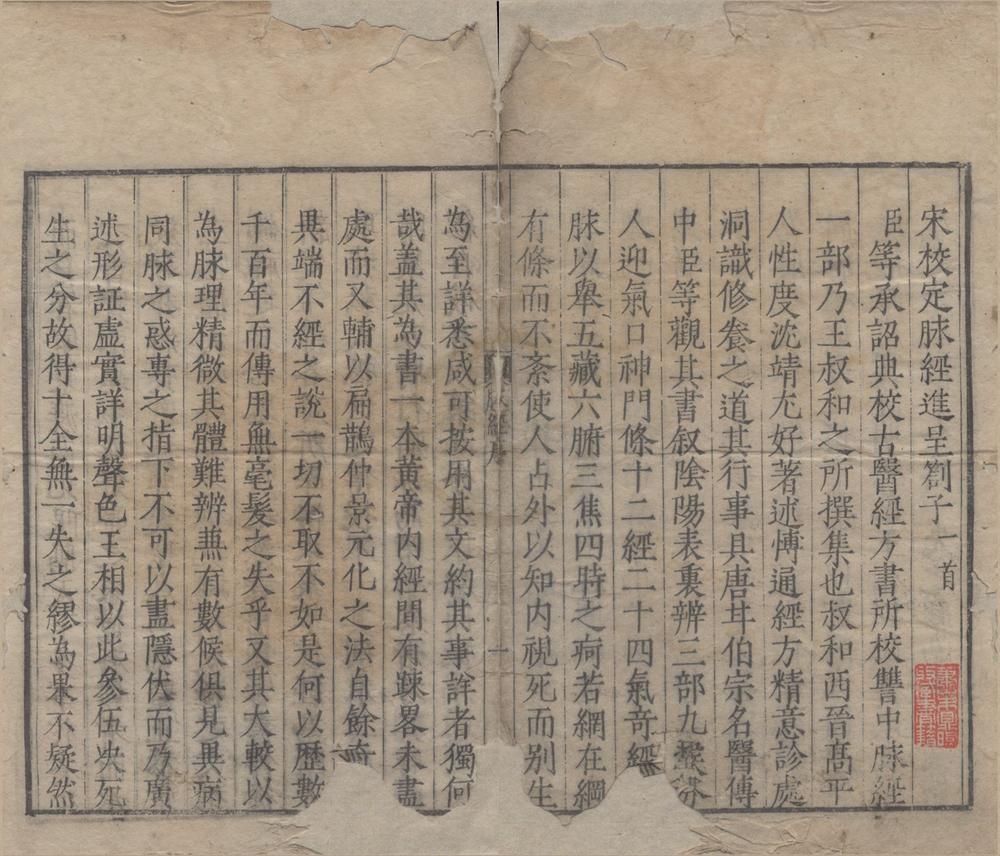 宋校定脉經進呈劄子一首
臣等承詔典校古醫經方書所校讐中脉經
一部乃王叔和之所撰集也叔和西晉髙平
人性度沈靖尢好著述愽通經方精意診處
洞識修養之道其行事具唐甘伯宗名醫傳
中臣等觀其書叙陰陽表裏辨三部九
人迎氣口神門條十二經二十四氣竒經
脉以舉五藏六腑三焦四時之疴若網在綱
有條而不紊使人占外以知内視死而别生
為至詳悉咸可按用其文約其事詳者獨何
哉盖其為書一本黄帝内經間有踈畧未盡
處而又輔以扁鵲仲景元化之法自餘竒
異端不經之說一切不取不如是何以歷數
千百年而傳用無毫髮之失乎又其大較以
為脉理精微其體難辨兼有數候俱見異病
同脉之惑專之指下不可以盡隱伏而乃廣
述形証虚實詳明聲色王相以此參伍决死
生之分故得十全無一失之繆為果不疑然
脉經序
一